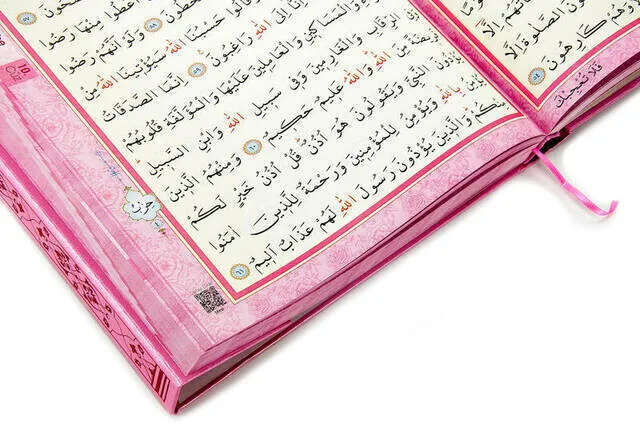 اُعْطُوا مِنْهَا رَضُوا
يَسْخَطُونَ ٥٨ وَلَوْ اَنَّهُمْ رَضُوا
وَقَالُوا حَسْبُنَا اللّٰهُ سَيُؤْتِينَا اللّٰهُ مِنْ
اللّٰهِ رَاغِبُونَ ٥٩ اِنَّمَا الصَّدَقَاتُ
وَالْمَسَاكِينِ وَالْعَامِلِينَ عَلَيْهَا وَالْمُؤَلَّفَةِ قُلُوبُهُمْ
الرِّقَابِ وَالْغَارِمِينَ وَفِي سَبِيلِ اللّٰهِ وَابْنِ السَّبِيلِ
مِنَ اللّٰهِ وَاللّٰهُ عَلِيمٌ حَكِيمٌ ٦٠ وَمِنْهُمُ الَّذِينَ
يُؤْذُونَ النَّبِيَّ وَيَقُولُونَ هُوَ اُذُنٌ قُلْ اُذُنُ خَيْرٍ لَكُمْ
بِاللّٰهِ وَيُؤْمِنُ لِلْمُؤْمِنِينَ وَرَحْمَةٌ لِلَّذِينَ اٰمَنُوا
مِنْكُمْ وَالَّذِينَ يُؤْذُونَ رَسُولَ اللّٰهِ لَهُمْ عَذَابٌ اَلِيمٌ ٦١
10.
Cüz
الصَّلٰوةَ اِلَّا
وَهُمْ كَارِهُونَ ٥٤
فَلَا تُعْجِبْكَ